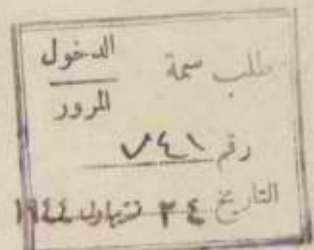 طلب سمة الدخول
المرور
رقم ٧٤١
التاريخ ٢٤ ١٩٤٤